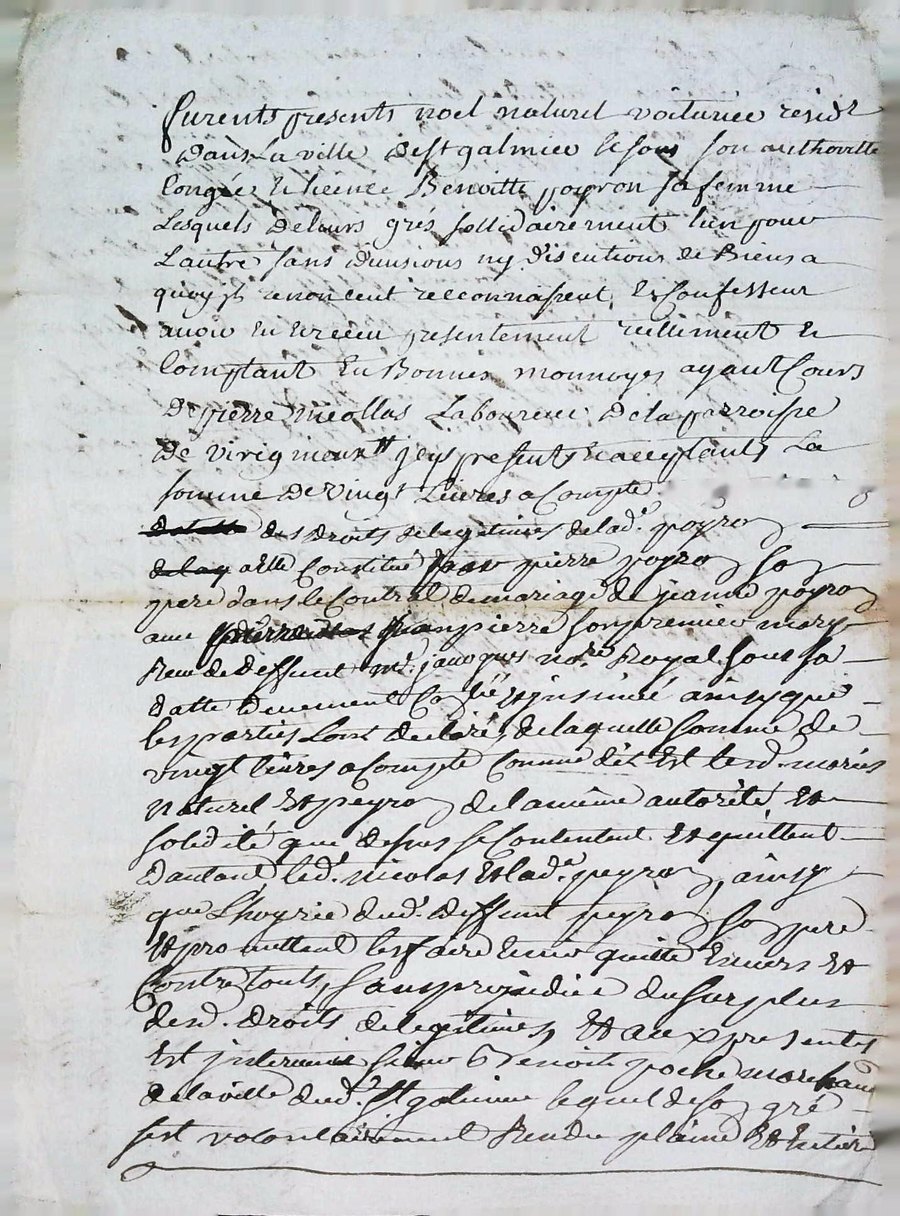 furent presents noel naturel voiturier résidt
dans la ville de st galmier Et sous son authoritté
Congée et licence Benoitte poyron sa femme
Lesquels de leurs grés sollidairement lun pour
Lautre sans divisions ny discutions de Biens a
quoy ils renoncent reconnaissent, Et Confessent
avoir Eu Et receu presentement réellement et
Comptant En Bonnes monnoyes ayant Cours
De pierre nicollas Laboureur de la parroisse
De virigneux jcy present Et acceptants La
somme De Vingt Livres a Compte
des Droits de legitimes de lad.e poyron
a elle Constitué par pierre poyron son
pere dans le Contrat de mariage de jeanne poyron
avec jean pierre son premier mary
Receu de deffunt me. jacques nore Royal sous sa
datte duement Collé Et jnsinué ainsy que
les parties L'ont declaré, de laquelle somme de
vingt livres a Compte Comme dit Est lesd. mariés
Naturel Et peyron de la même autorité, Et
solidité que dessus se Contentent Et quittent
Dautant led. nicolas Et lad.e peyron, ainsy
que L'hoyrie dud. deffunt peyron son pere
Et promettent les faire tenir quitte Envers Et
Contre touts, sans prejudice du surplus
desd. droits de legitimes, Et aux presentes
Est jntervenu sieur Benoit poché marchand
de la ville dud. st galmier lequel de son gré
s'est volontairement Rendu pleine Et Entiere